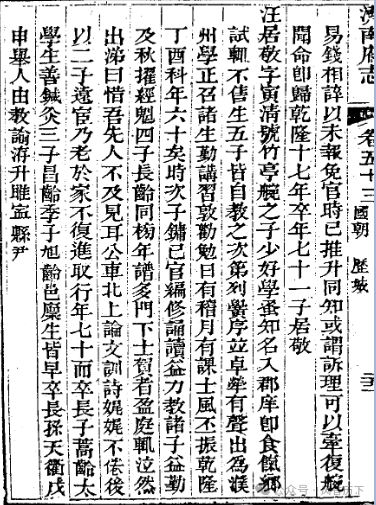 濟南府志 卷五十三 國朝 歷城
易錢相詳以未報免官時已推升同知或謂訴理可以牽復
聞命卽歸乾隆十七年卒年七十一子居敬
汪居敬字寅清號竹亭之子少好學蚤知名入郡庠卽食餼鄉
試輒不售生五子皆自教之次第列黌序並卓犖有聲出爲濮
州學正召諸生勤講習敦勸勉日有稽月有課士風丕振乾隆
丁酉科年六十矣時次子鏞已官編修誦讀益力教諸子益勤
及秋擢經魁四子長齡同榜年譜多門下士賀者盈庭輒泫然
出涕曰惜吾先人不及見耳公車北上論文訓詩娓娓不倦後
以二子遠官乃老於家不復進取行年七十而卒長子蒿齡太
學生善鍼灸三子昌齡季子旭齡邑廩生皆早卒長孫天衢戊
申舉人由教諭洊升睢寧縣尹